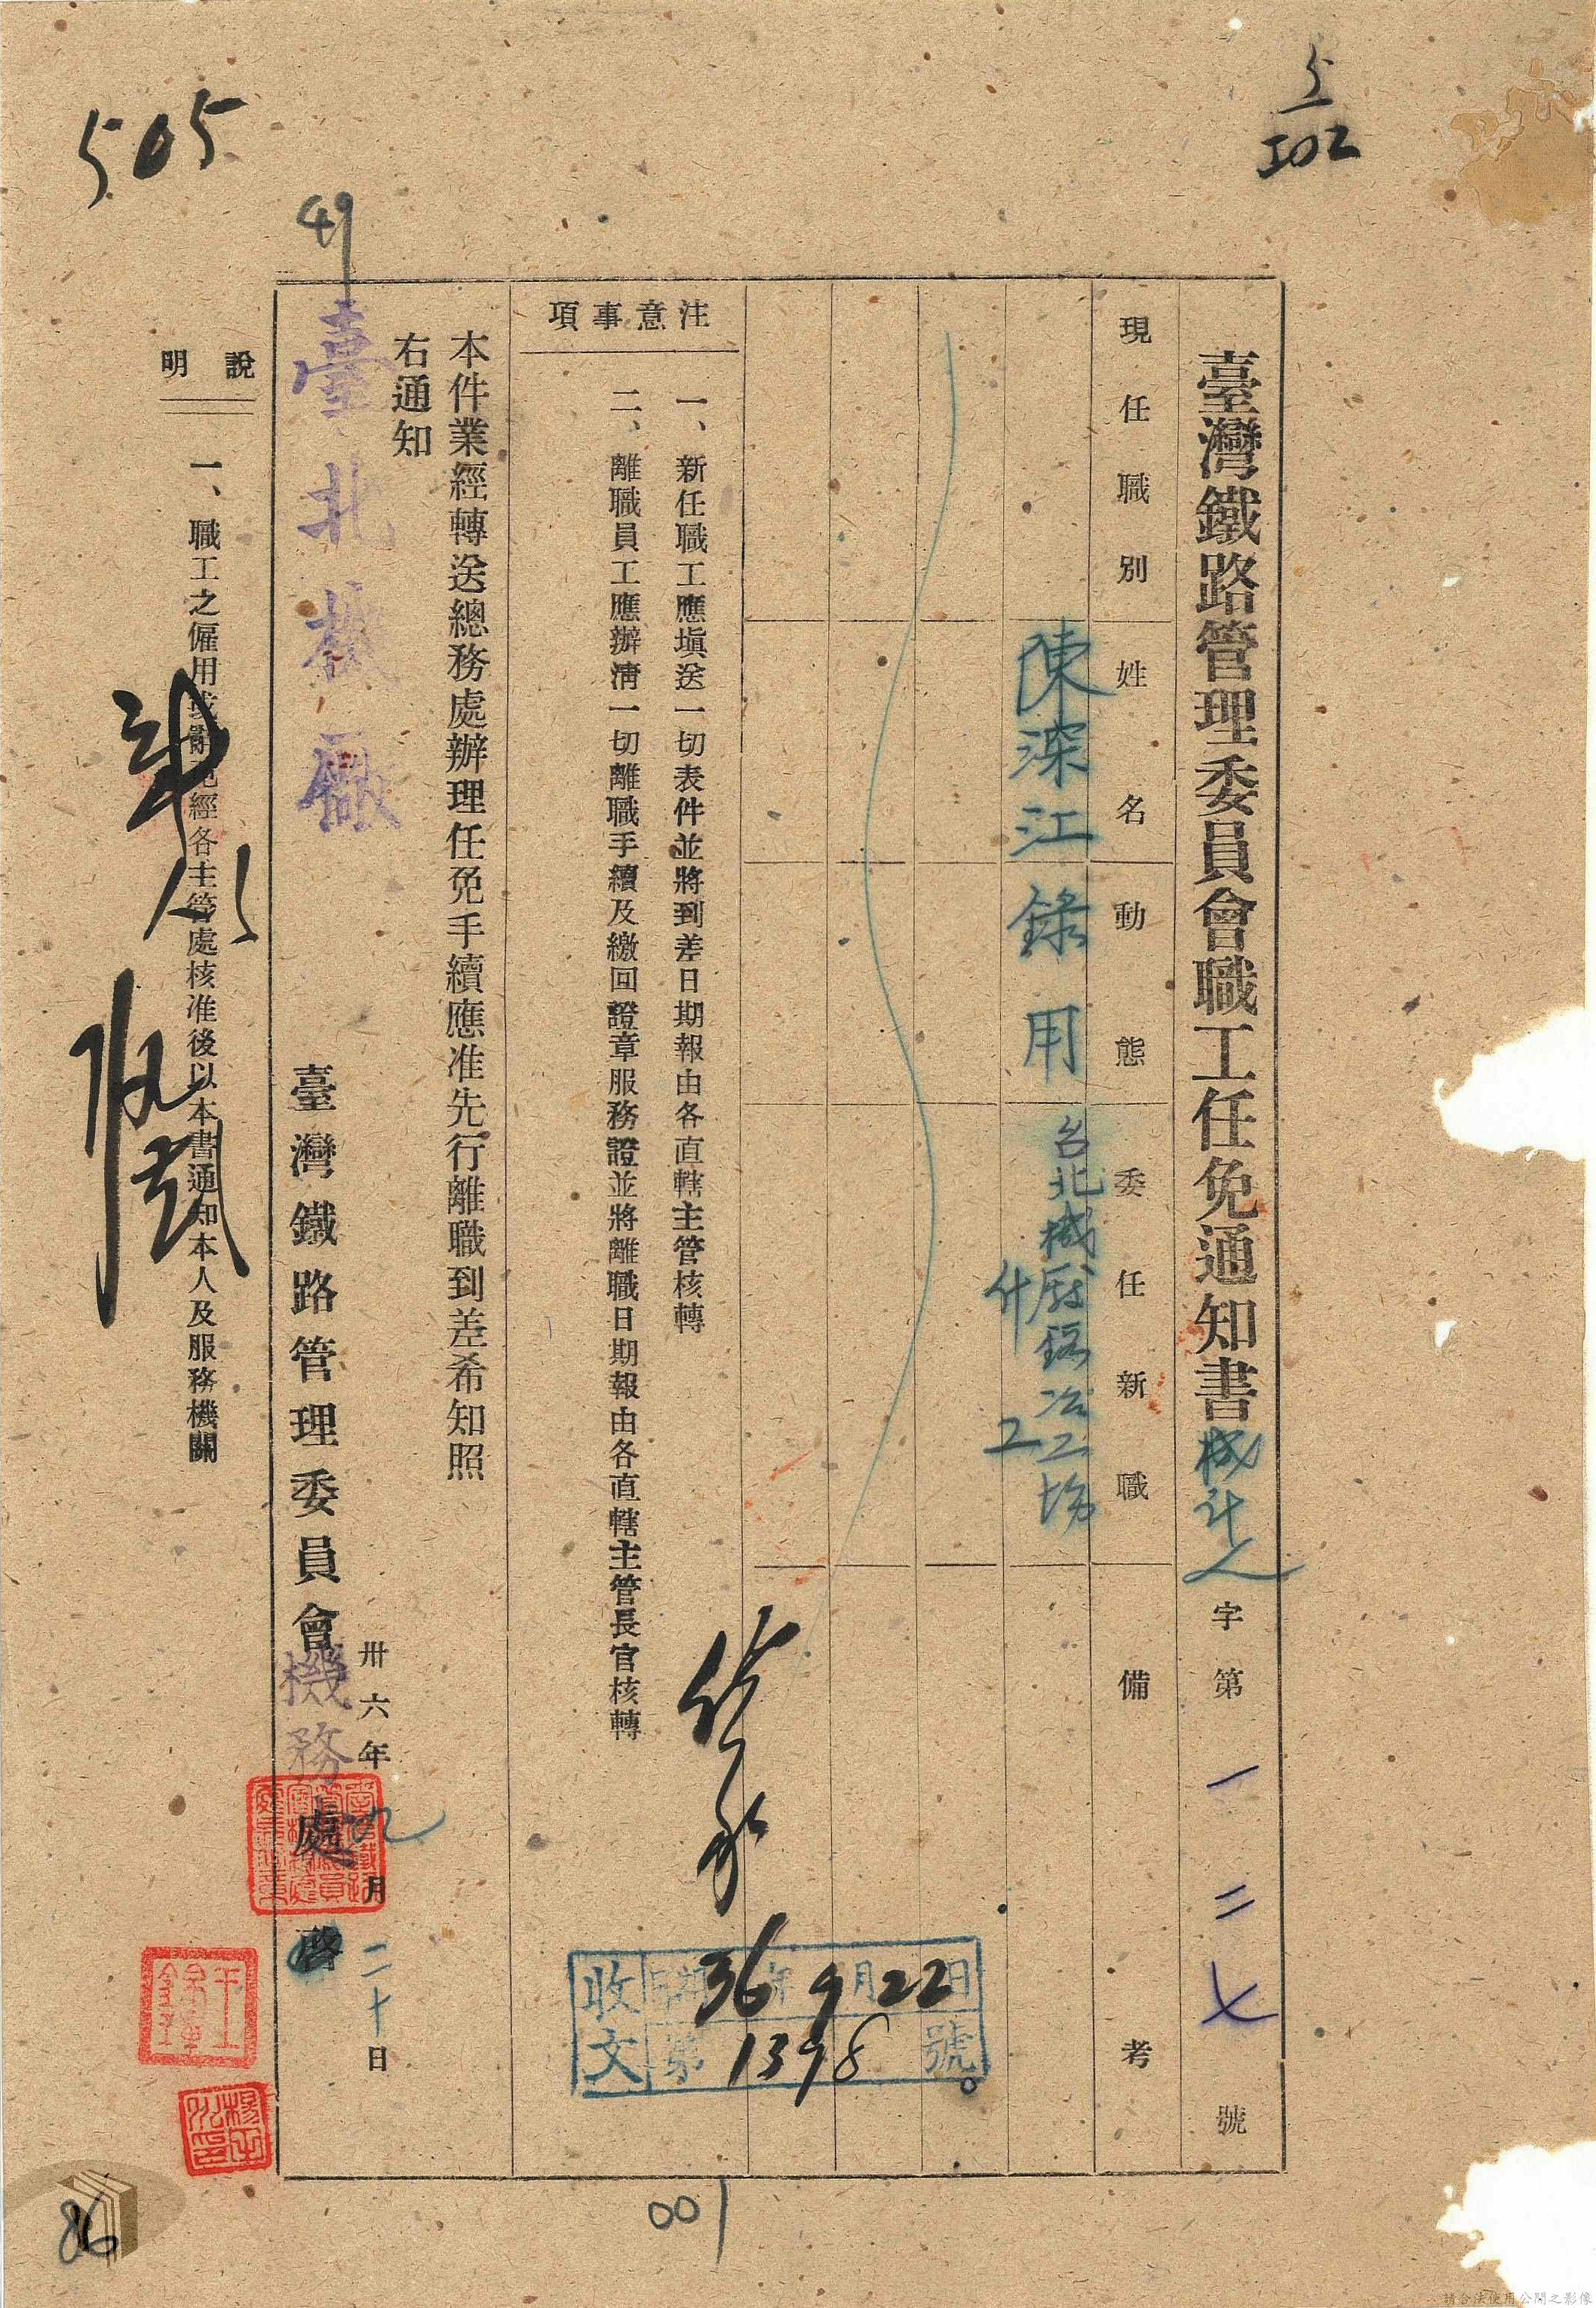 5
502
臺灣鐵路管理委員會職工任免通知書 機計人字第一二七號
現任職別 姓名 動態 委任新職 備考
陳深江 錄用 台北機廠鎔冶工場
什工
注意事項
一、新任職工應塡送一切表件並將到差日期報由各直轄主管核轉
二、離職員工應辦淸一切離職手續及繳回證章服務證並將離職日期報由各直轄主管長官核轉
收文 36年9月22日
第1398號
本件業經轉送總務處辦理任免手續應准先行離職到差希知照
右通知
臺北機廠
49
臺灣鐵路管理委員會機務處啓
卅六年九月二十日
說明
一、職工之僱用或解免經各主管處核准後以本書通知本人及服務機關
505
001
86
請合法使用公開之影像